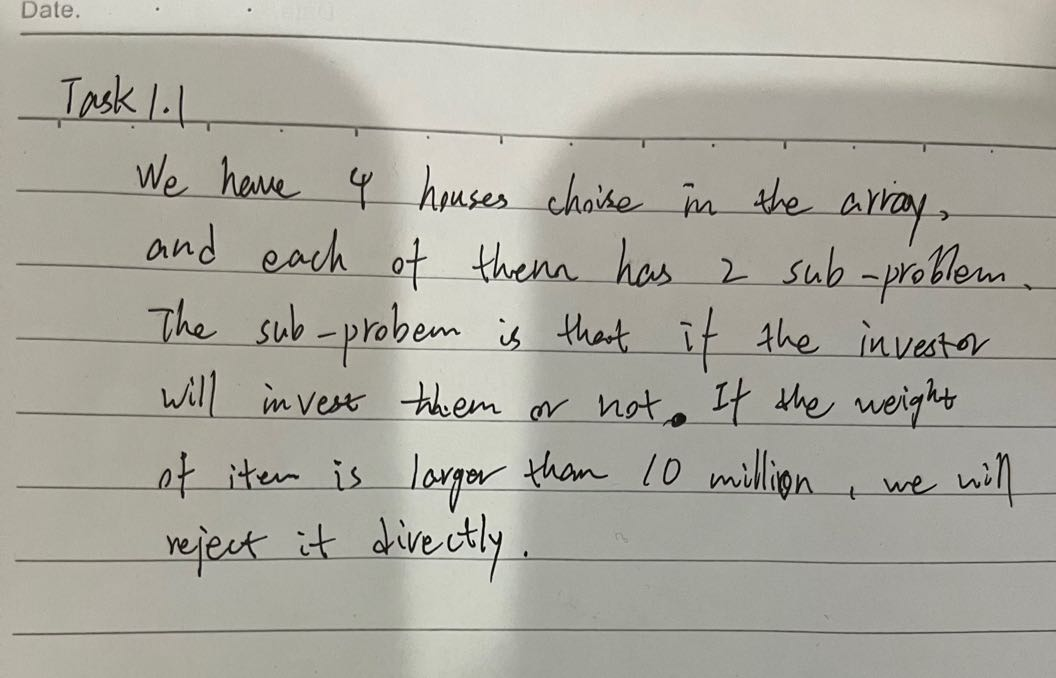 Date.
Task 1.1
We have 4 houses choise in the array,
and each of them has 2 sub-problem.
The sub-probem is that if the investor
will invest them or not. If the weight
of item is larger than 10 million, we will
reject it directly.